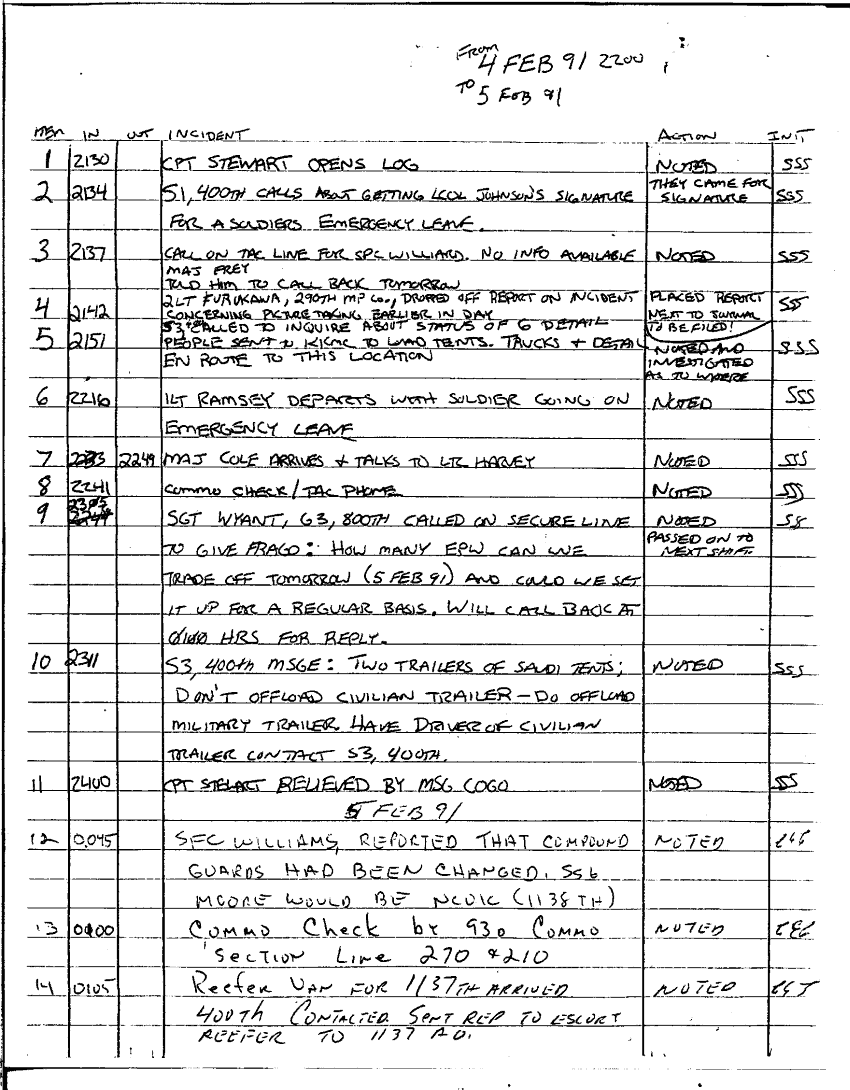 FROM 4 FEB 91 2200
TO 5 FEB 91
ITEM IN OUT INCIDENT ACTION INIT
1 2130 CPT STEWART OPENS LOG NOTED SSS
2 2134 S1, 400TH CALLS ABOUT GETTING LCOL JOHNSON'S SIGNATURE THEY CAME FOR SIGNATURE SSS
FOR A SOLDIERS EMERGENCY LEAVE.
3 2137 CALL ON TAC LINE FOR SPC WILLIARD. NO INFO AVAILABLE NOTED SSS
MAJ FREY
TOLD HIM TO CALL BACK TOMORROW
4 2142 2LT FURUKAWA, 290TH MP CO., DROPPED OFF REPORT ON INCIDENT PLACED REPORT SS
CONCERNING PICTURE TAKING EARLIER IN DAY NEXT TO JOURNAL
TO BE FILED!
5 2151 S3 CALLED TO INQUIRE ABOUT STATUS OF 6 DETAIL
PEOPLE SENT TO KKMC TO LOAD TENTS. TRUCKS & DETAIL NOTED AND SSS
EN ROUTE TO THIS LOCATION INVESTIGATED
AS TO WHERE
6 2216 1LT RAMSEY DEPARTS WITH SOLDIER GOING ON NOTED SSS
EMERGENCY LEAVE
7 2249 MAJ COLE ARRIVES & TALKS TO LTC HARVEY NOTED SSS
8 2241 COMMO CHECK/TAC PHONE NOTED SSS
9 2305 SGT WYANT, G3, 800TH CALLED ON SECURE LINE NOTED SS
TO GIVE FRAGO: HOW MANY EPW CAN WE PASSED ON TO NEXT SHIFT.
TRADE OFF TOMORROW (5 FEB 91) AND COULD WE SET
IT UP FOR A REGULAR BASIS. WILL CALL BACK AT
0100 HRS FOR REPLY.
10 2311 S3, 400th MSGE: TWO TRAILERS OF SAUDI TENTS; NOTED SSS
DON'T OFFLOAD CIVILIAN TRAILER - DO OFFLOAD
MILITARY TRAILER. HAVE DRIVER OF CIVILIAN
TRAILER CONTACT S3, 400TH.
11 2400 CPT STEWART RELIEVED BY MSG COGO NOTED SS
5 FEB 91
12 0045 SFC WILLIAMS, REPORTED THAT COMPOUND NOTED
GUARDS HAD BEEN CHANGED. SSG
MOORE WOULD BE NCOIC (1138TH)
13 0100 COMMO Check by 930 COMMO NOTED
SECTION LINE 270 & 210
14 0105 Reefer VAN FOR 1137TH ARRIVED NOTED
400TH CONTACTED SENT REP TO ESCORT
REEFER TO 1137 AO.